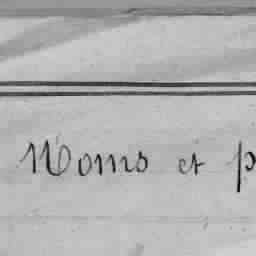 Noms et p